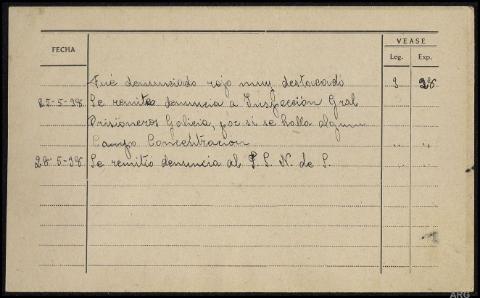 VEASE
FECHA
Leg. Exp.
Fué denunciado rojo muy destacado 3 28
27-5-38 Se remitió denuncia a Inspección Gral
Prisioneros Galicia, por si se halla algun
Campo Concentracion " "
28-5-38 Se remitió denuncia al S. N. de S. " "
ARG